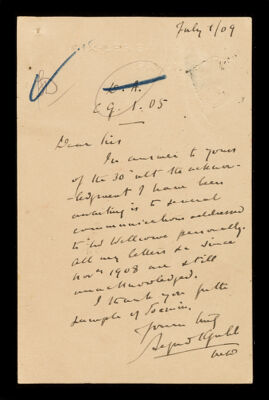 July 1/09
E.G. 1. 05
Dear Sirs
In answer to yours
of the 30th ult the acknow-
-ledgment I have been
awaiting is to several
communications addressed
to Mr Wellcome personally.
All my letters &c since
Novr 1908 are still
unacknowledged.
I thank you for the
sample of
Yours truly